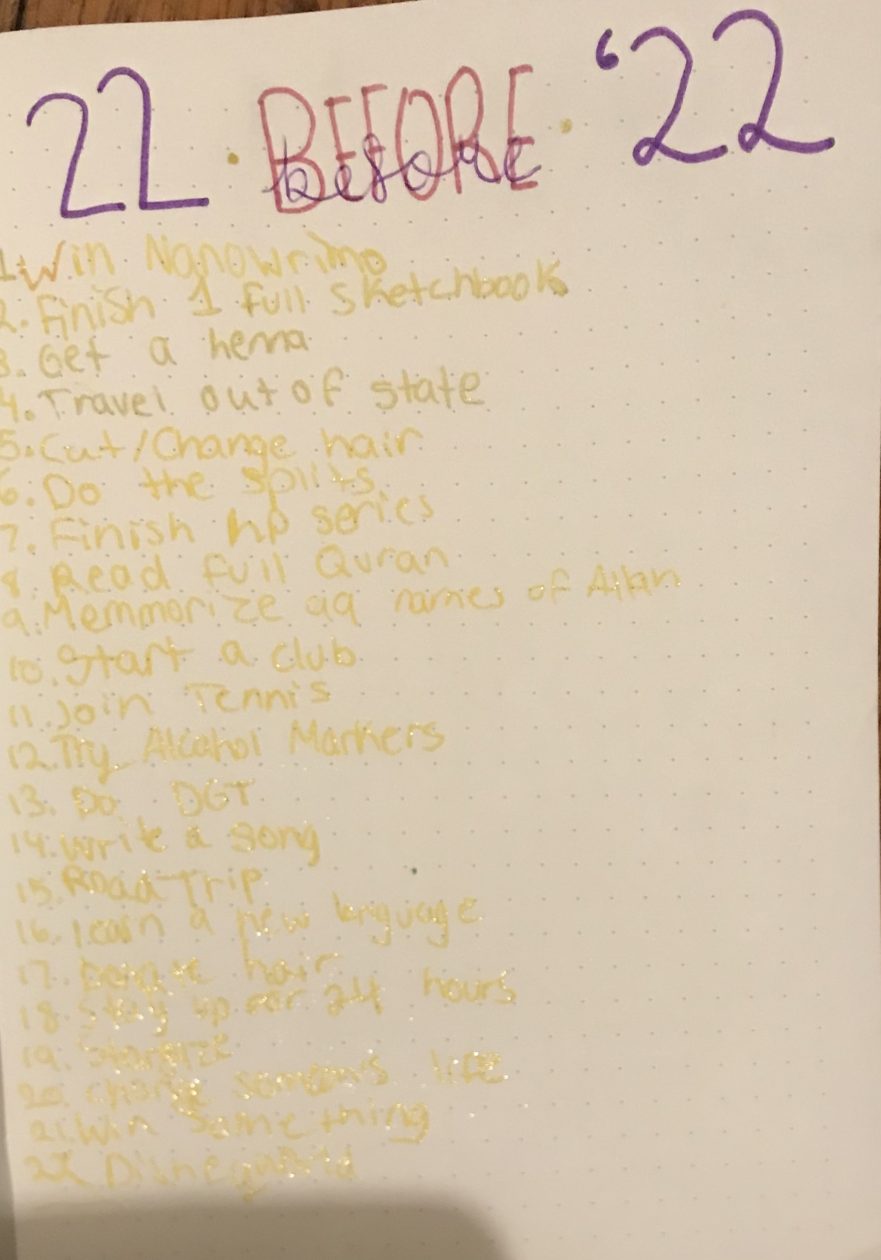 22 · BEFORE · '22
before
1. Win Nanowrimo
2. Finish 1 full sketchbook
3. Get a henna
4. Travel out of state
5. Cut/Change hair
6. Do the splits
7. Finish hp series
8. Read full Quran
9. Memmorize 99 names of Allah
10. Start a club
11. Join Tennis
12. Try Alcohol Markers
13. Do DGT
14. Write a song
15. Road Trip
16. learn a new language
17. hair
18. Stay up for 24 hours
19. Stargaze
20. Change life
21. Win something
22.